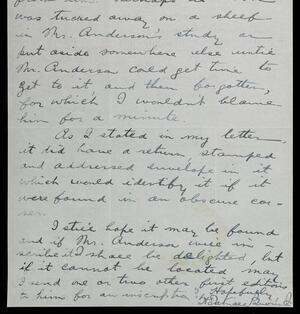 was tucked away on a shelf
in Mr. Anderson's study or
put aside somewhere else until
Mr. Anderson could get time to
get to it and then forgotten,
for which I wouldn't blame
him for a minute.
As I stated in my letter,
it did have a return, stamped
and addressed envelope in it
which would identify it if it
were found in an obscure cor-
ner.
I still hope it may be found
and if Mr. Anderson will in-
scribe it I shall be delighted, but
if it cannot be located may
I send one or two other first editions
to him for an inscription?
Hopefully,